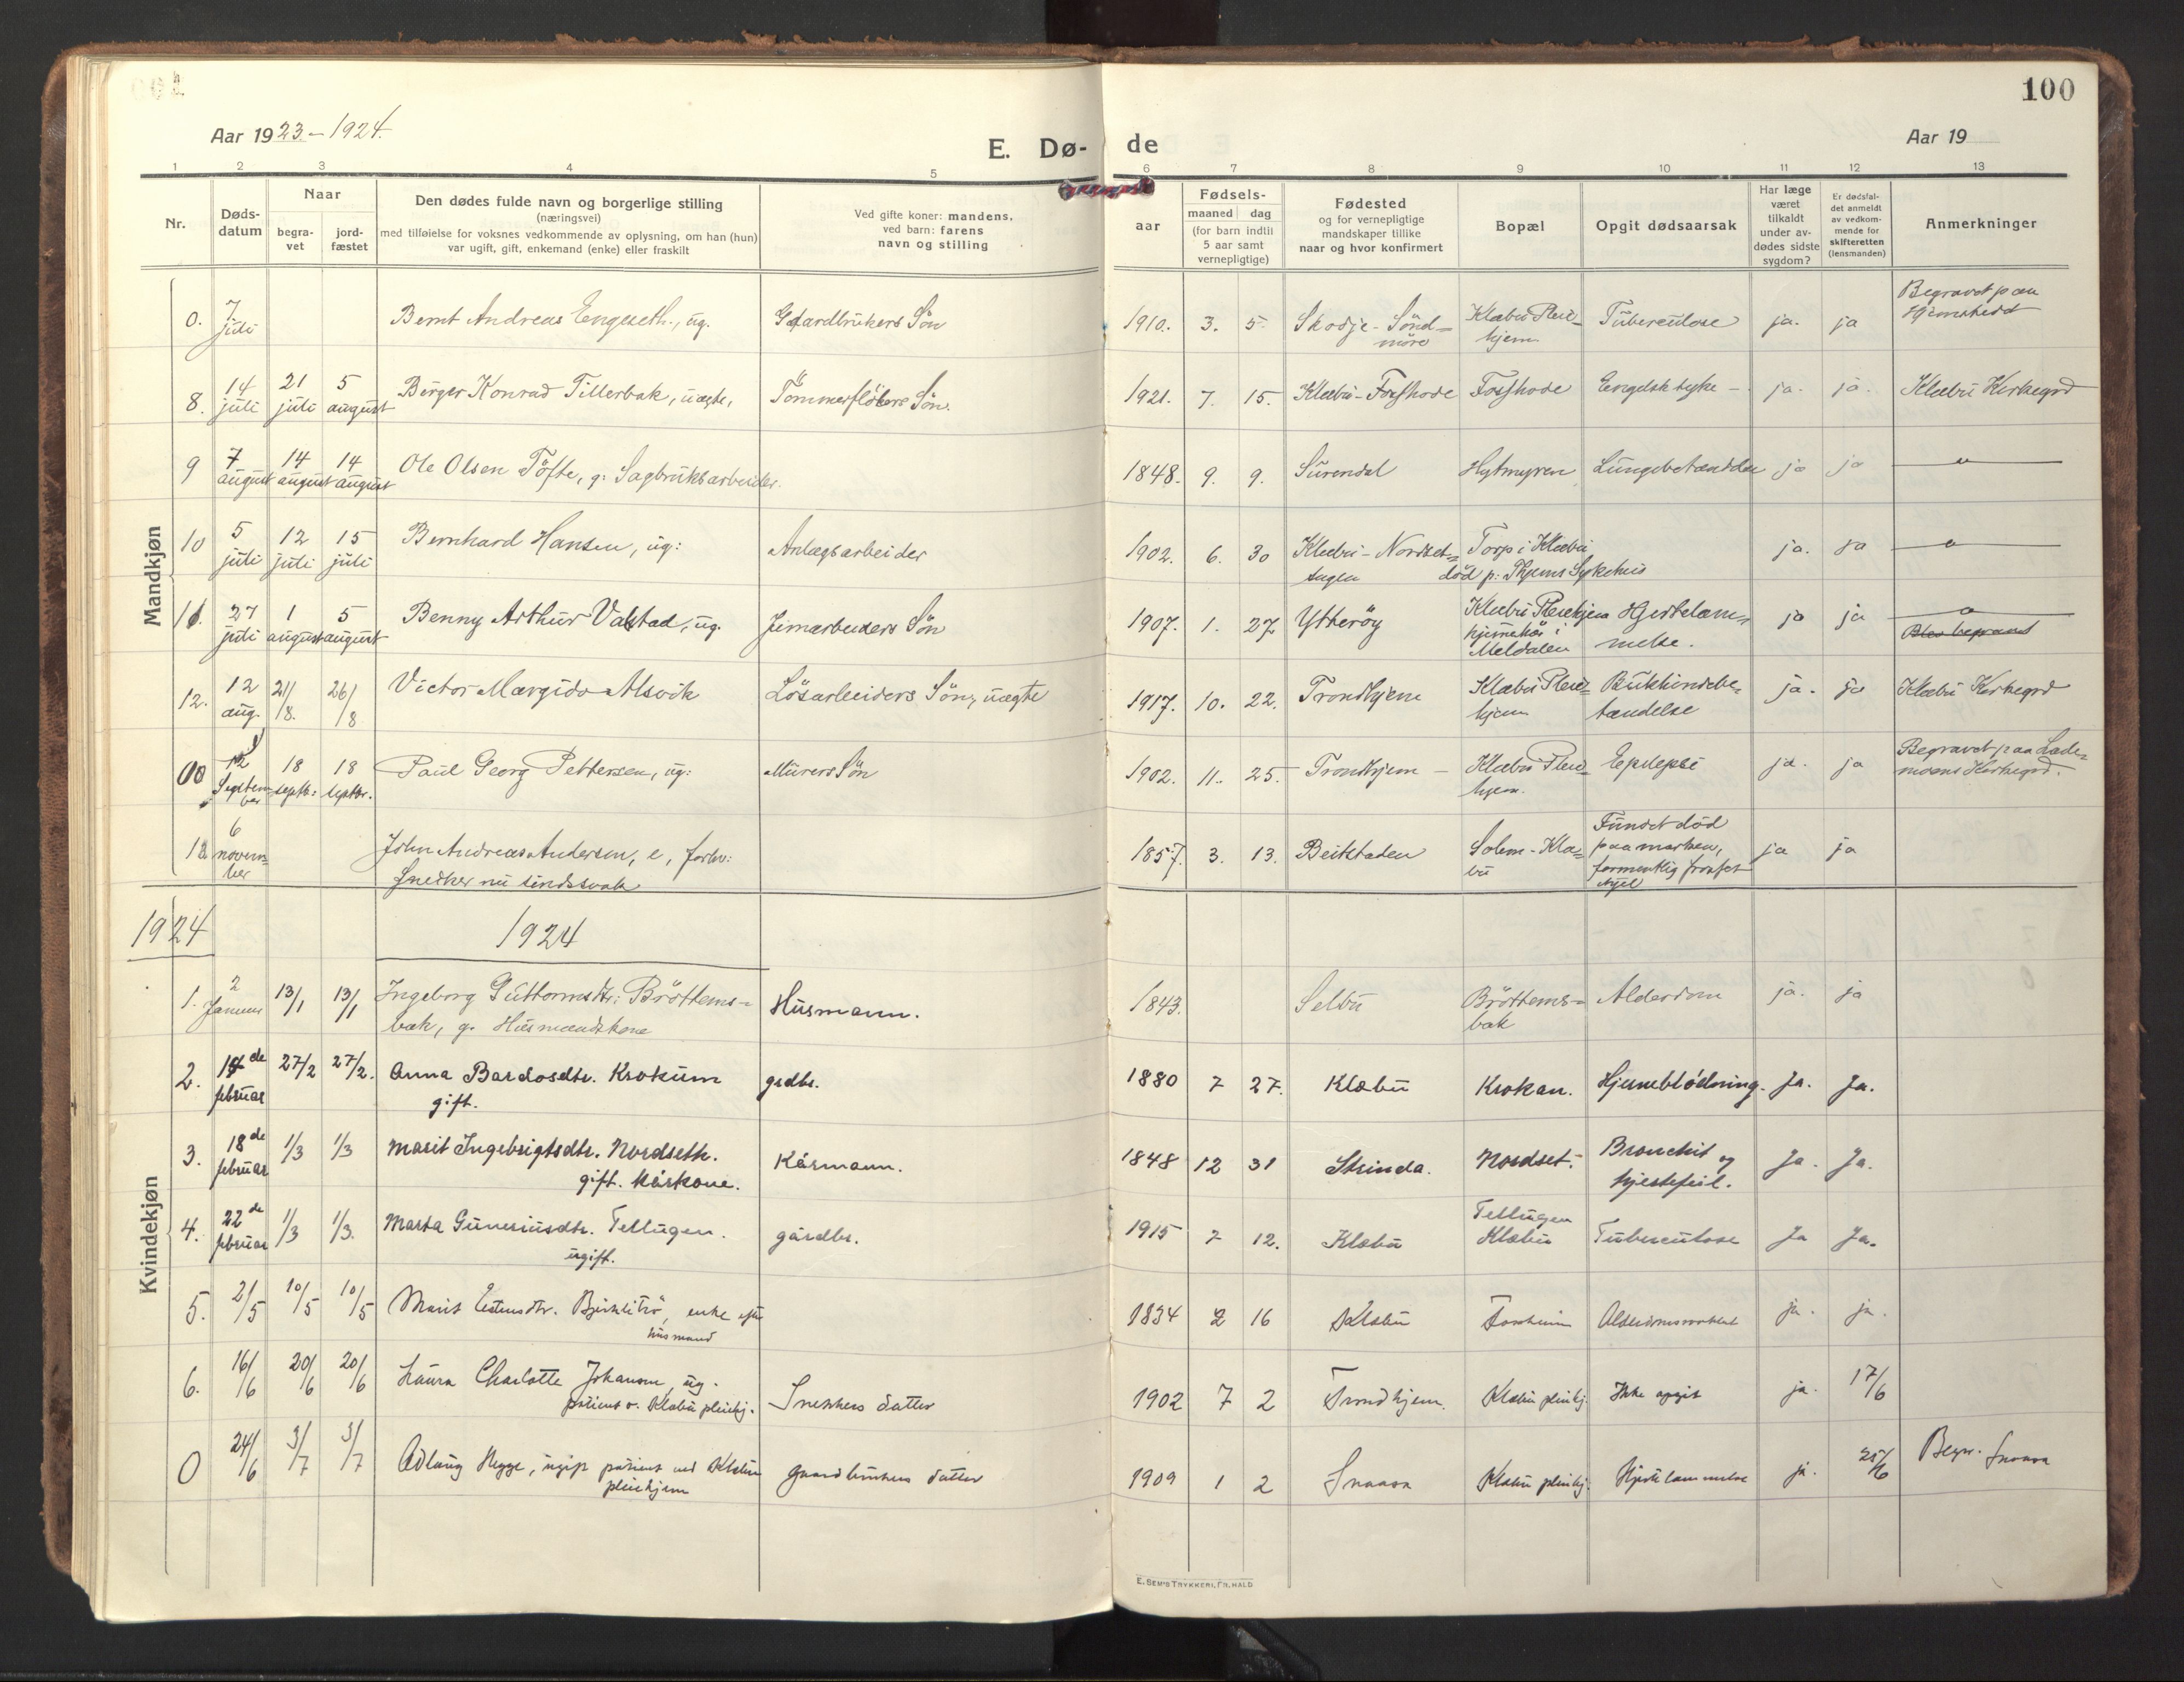 100
Aar 1923-1924.
E. Dø-
de
Aar 19
1 2 3 4 5 6 7 8 9 10 11 12 13
Nr.
Døds-
datum
Naar
begra-
vet
jord-
fæstet
Den dødes fulde navn og borgerlige stilling
(næringsvei)
med tilføielse for voksnes vedkommende av oplysning, om han (hun)
var ugift, gift, enkemand (enke) eller fraskilt
Ved gifte koner: mandens,
ved barn: farens
navn og stilling
aar
Fødsels-
maaned dag
(for barn indtil
5 aar samt
vernepligtige)
Fødested
og for vernepligtige
mandskaper tillike
naar og hvor konfirmert
Bopæl
Opgit dødsaarsak
Har læge
været
tilkaldt
under av-
dødes sidste
sygdom?
Er dødsfal-
det anmeldt
av vedkom-
mende for
skifteretten
(lensmanden)
Anmerkninger
Mandkjøn
0. 7. juli Bernt Andreas Engeseth., ug. Gaardbrukers Sön 1910. 3. 5. Skodje - Sönd=
möre Klæbu Pleie=
hjem Tuberculose ja. ja Begravet paa
Hjemsted
8. 14 juli 21 juli 5 august Birger Konrad Tillerbak, uægte, Tömmerflöters Sön. 1921. 7. 15. Klæbu - Fosshode Fosshode Engelsk syke - ja. ja. Klæbu Kirkegrd
9 7 august 14 august 14 august Ole Olsen Töfte, g. Sagbruksarbeider. 1848. 9. 9. Surendal Hytmyren ja ja — " —
10 5 juli 12 juli 15 juli Bernhard Hansen, ug: Anlægsarbeider 1902. 6. 30 Klæbu - Nordset=
Torp i Klæbu
död p. Thjems Sykehus ja. ja — " —
11. 27 juli 1 august 5 august Benny Arthur Valstad, ug. Jernarbeiders Sön 1907. 1. 27. Ytteröy Klæbu Pleiehjem
Meldalen Hjertelam=
melse. ja ja — " —
Blev begravet
12. 12 aug. 21/8. 26/8 Victor Margido Alsvik Lösarbeiders Sön, uægte 1917. 10. 22. Trondhjem Klæbu Pleie=
hjem Bukhindebe=
tændelse ja. ja Klæbu Kirkegrd
00 12 September 18 septbr: 18 septbr. Paul Georg Pettersen, ug: Murers Sön 1902. 11. 25. Trondhjem - Klæbu Pleie=
hjem. Epilepsi ja. ja Begravet paa Lade=
moens Kirkegrd.
13 6 novem=
ber John Andreas Andersen, e, forhv:
Snedker nu sindssvak 1857. 3. 13. Beitstaden Solem - Klæ=
bu Fundet död
paa marken,
formentlig frosset
ihjel ja ja
1924
1924
Kvindekjøn
1. 2 Januar 13/1 13/1 Ingeborg Guttormsdtr: Bröttems=
bak, g. Husmandskone Husmann. 1843. Selbu Bröttems=
bak Alderdom ja. ja
2. 19de februar 27/2 27/2. Anna Bardosdtr. Krokum
gift. grdbr. 1880 7 27. Klæbu Krokan. Hjerneblödning. Ja. Ja.
3. 18de februar 1/3 1/3 Marit Ingebrigtsdtr. Nordseth.
gift. kårkone. Kårmann. 1848 12 31 Strinda. Nordset. Bronchit og
hjertefeil. Ja. Ja.
4. 22de februar 1/3 1/3. Marta Guneriusdtr. Tellugen.
ugift. gårdbr. 1915 7 12. Klæbu Tellugen
Klæbu Tuberculose Ja Ja.
5. 2/5 10/5 10/5 Marit Estensdtr. enke efter
husmand 1834 2 16 Klæbu ja. ja.
6. 16/6 20/6 20/6 Laura Charlotte Johansen ug.
patient v. Klæbu pleiehj. Snekkers datter 1902 7 2 Trondhjem. Klæbu pleiehj. Ikke opgit ja. 17/6
0 24/6 3/7 3/7 Adlaug Hegge, ugift patient ved Klæbu
pleiehjem Gaardbrukers datter 1909 1 2 Snaasa Klæbu pleiehj. Hjertelammelse ja. 25/6 Begr. Snaasa
E. SEM'S TRYKKERI, FR. HALD